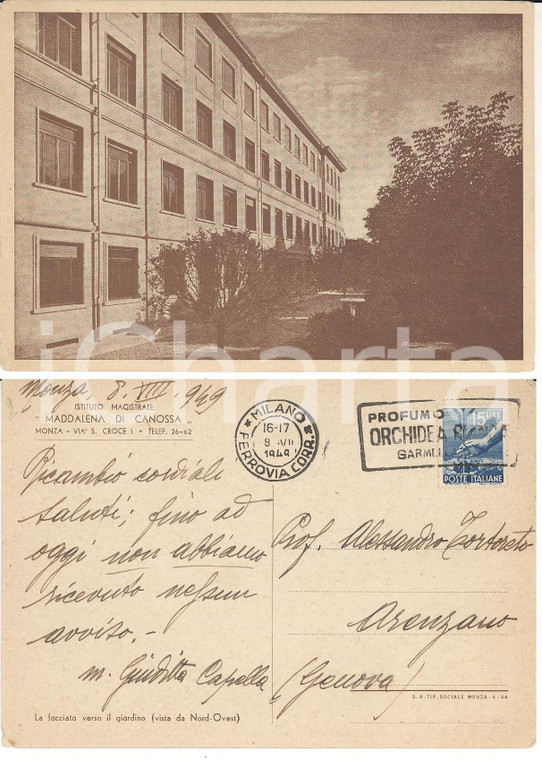 iCharta
Monza, 8. VIII. 949
ISTITUTO MAGISTRALE
"MADDALENA DI CANOSSA„
MONZA - VIA S. CROCE 1 - TELEF. 26-62
MILANO
16-17
1949
FERROVIA CORR.
PROFUMO
ORCHIDEA
GARMI
15 LIRE
POSTE ITALIANE
Ricambio cordiali
saluti; fino ad
oggi non abbiamo
ricevuto nessun
avviso. -
m. Giuditta Capella
Prof. Alessandro Tortoreto
Arenzano
(Genova)
S.A. TIP. SOCIALE MONZA
La facciata verso il giardino (vista da Nord-Ovest)